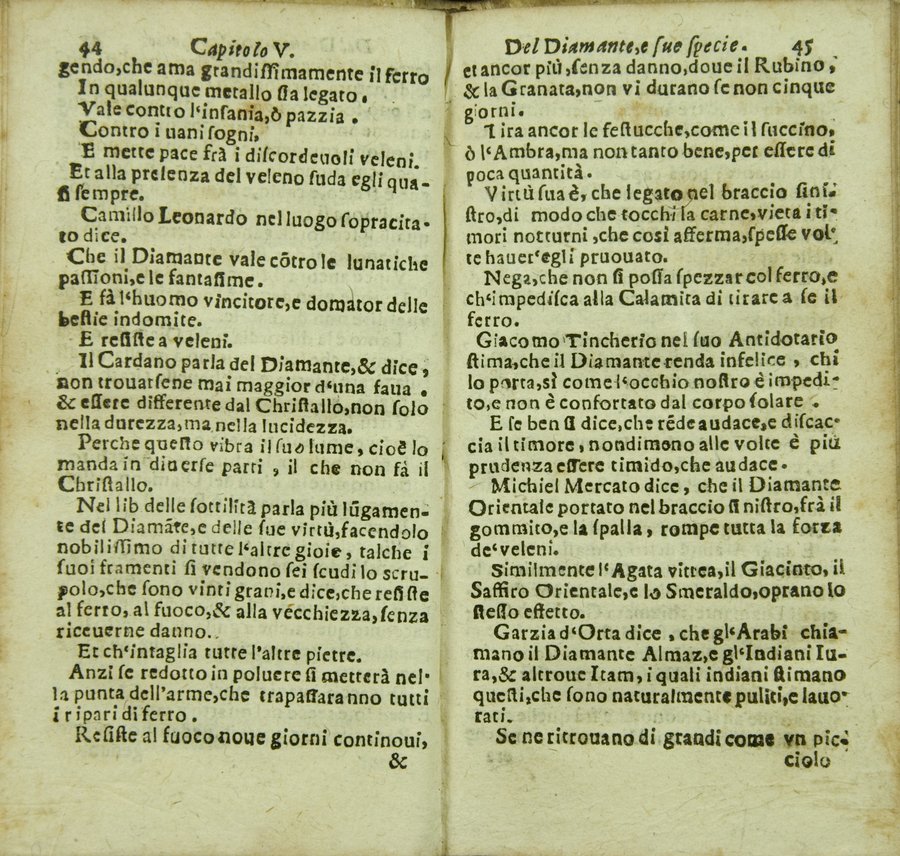 44 Capitolo V.
gendo,che ama grandiſſimamente il ferro
In qualunque metallo ſia legato.
Vale contro l'inſania,ò pazzia.
Contro i uani ſogni,
E mette pace frà i diſcordeuoli veleni.
Et alla preſenza del veleno ſuda egli qua-
ſi ſempre.
Camillo Leonardo nel luogo ſopracita-
to dice.
Che il Diamante vale cõtro le lunatiche
paſſioni,e le fantaſime.
E fà l'huomo vincitore,e domator delle
beſtie indomite.
E reſiſte a veleni.
Il Cardano parla del Diamante,& dice,
non trouarſene mai maggior d'una faua.
& eſſere differente dal Chriſtallo,non ſolo
nella durezza,ma nella lucidezza.
Perche queſto vibra il ſuo lume, cioè lo
manda in diuerſe parti, il che non fà il
Chriſtallo.
Nel lib delle ſottilità parla più lũgamen-
te del Diamãte,e delle ſue virtù,facendolo
nobiliſſimo di tutte l'altre gioie, talche i
ſuoi framenti ſi vendono ſei ſcudi lo scru-
polo,che ſono vinti grani,e dice,che reſiſte
al ferro, al fuoco,& alla vecchiezza,ſenza
riceuerne danno.
Et ch'intaglia tutte l'altre pietre.
Anzi ſe redotto in poluere ſi metterà nel-
la punta dell'arme,che trapaſſaranno tutti
i ripari di ferro.
Reſiſte al fuoco noue giorni continoui,
&
Del Diamante,e ſue ſpecie. 45
et ancor più,ſenza danno,doue il Rubino,
& la Granata,non vi durano ſe non cinque
giorni.
Tira ancor le feſtucche,come il ſuccino,
ò l'Ambra,ma non tanto bene,per eſſere di
poca quantità.
Virtù ſua è, che legato nel braccio ſini-
ſtro,di modo che tocchi la carne,vieta i ti-
mori notturni,che così afferma,ſpeſſe vol-
te hauer'egli pruouato.
Nega,che non ſi poſſa ſpezzar col ferro,e
ch'impediſca alla Calamita di tirare a ſe il
ferro.
Giacomo Tincherio nel ſuo Antidotario
ſtima,che il Diamante renda infelice, chi
lo porta,sì come l'occhio noſtro è impedi-
to,e non è confortato dal corpo ſolare.
E ſe ben ſi dice,che rẽde audace,e diſcac-
cia il timore, nondimeno alle volte è più
prudenza eſſere timido,che audace.
Michiel Mercato dice, che il Diamante
Orientale portato nel braccio ſiniſtro,frà il
gommito,e la ſpalla, rompe tutta la forza
de'veleni.
Similmente l'Agata vitrea,il Giacinto, il
Saffiro Orientale,e lo Smeraldo,oprano lo
ſteſſo effetto.
Garzia d'Orta dice, che gl'Arabi chia-
mano il Diamante Almaz,e gl'Indiani Iu-
ra,& altroue Itam, i quali indiani ſtimano
queſti,che ſono naturalmente puliti,e lauo-
rati.
Se ne ritrouano di grandi come vn pic-
ciolo